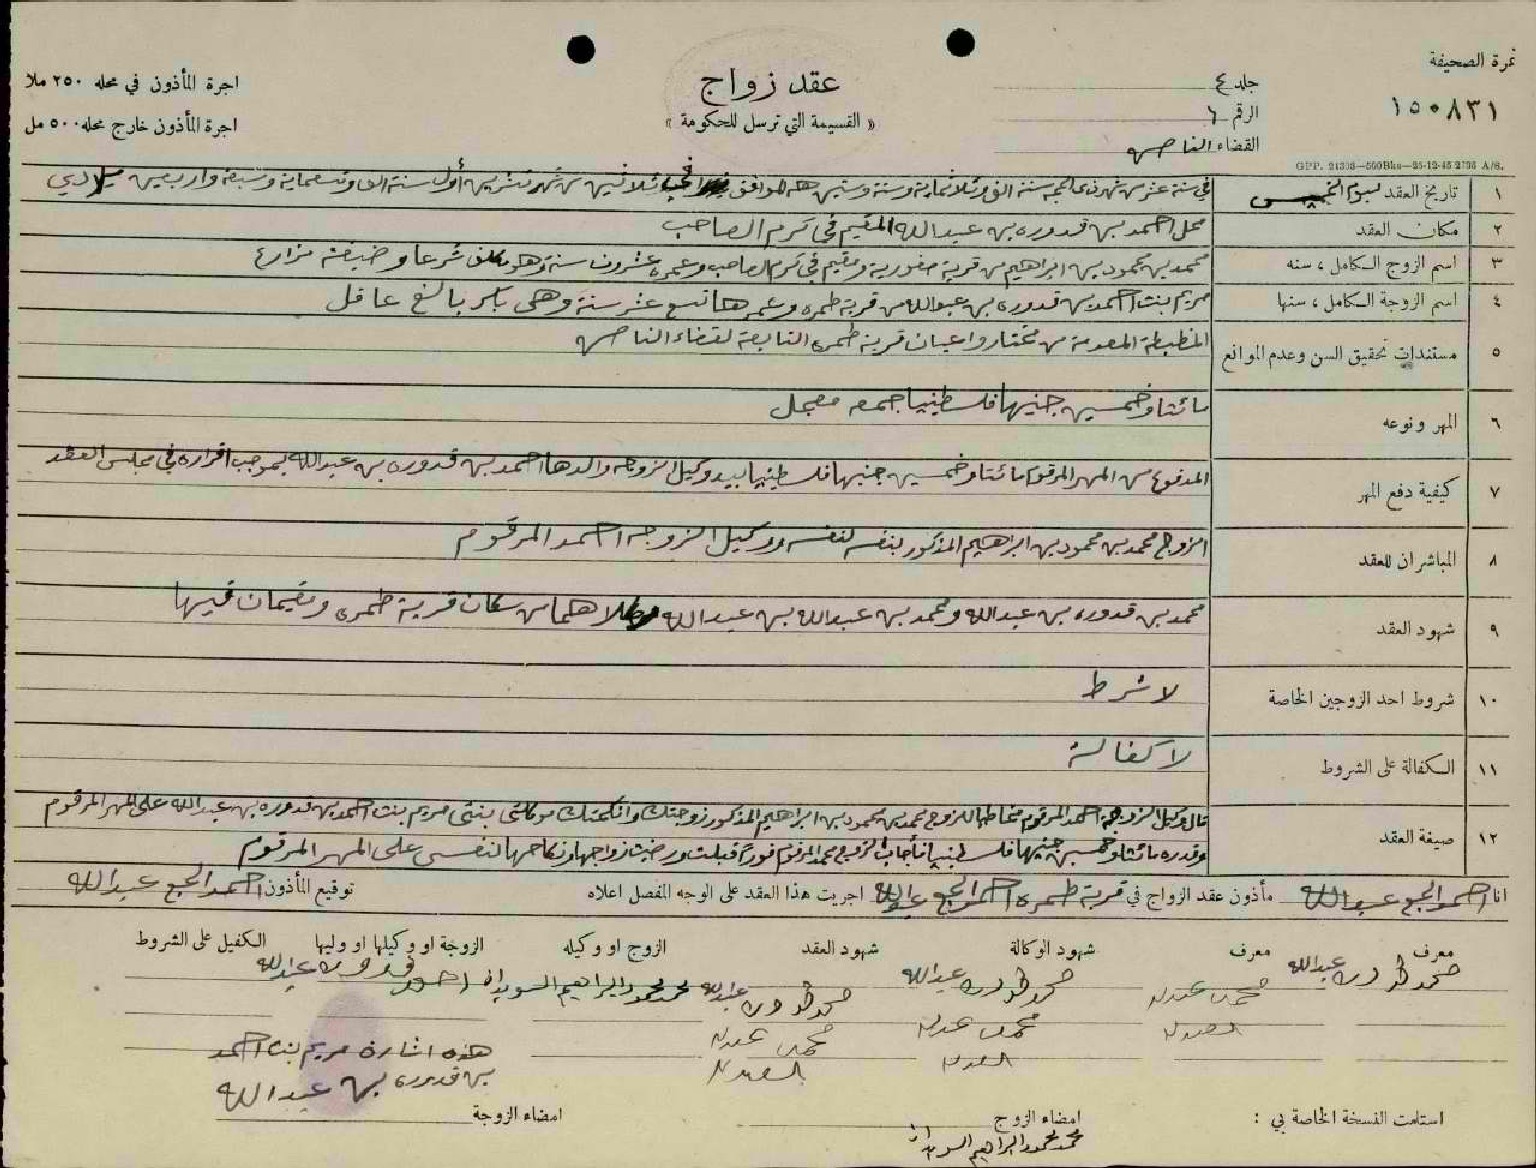 نمرة الصحيفة
١٥٠٨٣١
جلد ٤
الرقم ٦
القضاء الناصره
عقد زواج
« القسيمة التي ترسل للحكومة »
اجرة المأذون في محله ٢٥٠ ملا
اجرة المأذون خارج محله ٥٠٠ مل
GPP. 24303—500Bks—25-12-45 2723 A/S.
١ تاريخ العقد بيوم الخميس في ستة عشر من شهر ذي الحجه سنة الف وثلاثماية وستة وستين هـ الموافق في ثلاثين من شهر تشرين أول سنة الف وتسعماية وسبعة واربعين ميلادي
٢ مكان العقد محل احمد بن قدوره بن عبد الله المقيم في كرم الصاحب
٣ اسم الزوج الكامل ، سنه محمد بن محمود بن ابراهيم من قرية صفورية ومقيم في كرم الصاحب وعمره عشرون سنة وهو مكلف شرعا وضيفته مزارع
٤ اسم الزوجة الكامل ، سنها مريم بنت احمد بن قدوره بن عبد الله من قرية طمره وعمرها تسع عشر سنة وهي باكر بالغ عاقل
٥ مستندات تحقيق السن وعدم الموانع المظبطة المعومة من مختار واعيان قرية طمره التابعة لقضاء الناصره
٦ المهر ونوعه مائتا وخمسين جنيها فلسطينيا جمعه معجل
٧ كيفية دفع المهر المدفوع من المهر المرقوم مائتا وخمسين جنيها فلسطينيا بيد وكيل الزوجه والدها احمد بن قدوره بن عبد الله بموجب اقراره في مجلس العقد
٨ المباشران للعقد الزوج محمد بن محمود بن ابراهيم المذكور بنفسه لنفسه ووكيل الزوجه احمد المرقوم
٩ شهود العقد محمد بن قدوره بن عبد الله ومحمد بن عبد الله بن عبد الله وكلاهما من سكان قرية طمره ومقيمان فيها
١٠ شروط احد الزوجين الخاصة لا شرط
١١ الكفالة على الشروط لا كفالة
١٢ صيغة العقد قال وكيل الزوجه احمد المرقوم مخاطبا للزوج محمد بن محمود بن ابراهيم المذكور زوجتك وانكحتك موكلتي بنتي مريم بنت احمد بن قدوره بن عبد الله على المهر المرقوم
وقدره مائتا وخمسين جنيها فلسطينيا فأجاب الزوج محمد المرقوم فورا قبلت ورضيت زواجها ونكاحها لنفسي على المهر المرقوم
انا احمد الحج عبد الله مأذون عقد الزواج في قرية طمره احمد الحج عبد الله اجريت هذا العقد على الوجه المفصل اعلاه توقيع المأذون احمد الحج عبد الله
معرف معرف شهود الوكالة شهود العقد الزوج او وكيله الزوجة او وكيلها او وليها الكفيل على الشروط
محمد قدوره عبد الله محمد عبد الله محمد قدوره عبد الله محمد قدوره عبد الله محمد محمود ابراهيم السويدان احمد قدوره عبد الله
العبد الله محمد عبد الله محمد عبد الله
العبد الله العبد الله
هذه اشارة مريم بنت احمد
بن قدوره بن عبد الله
استلمت النسخة الخاصة بي : امضاء الزوج امضاء الزوجة
محمد محمود ابراهيم السويدان